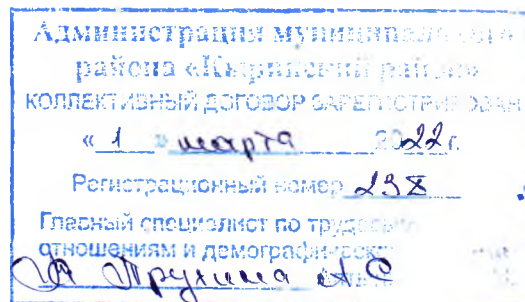 Администрация муниципального
района «Кыринский район»
КОЛЛЕКТИВНЫЙ ДОГОВОР ЗАРЕГИСТРИРОВАН
« 1 » марта 2022 г.
Регистрационный номер
Главный специалист по трудовым
отношениям и демографическим
Трухина А С